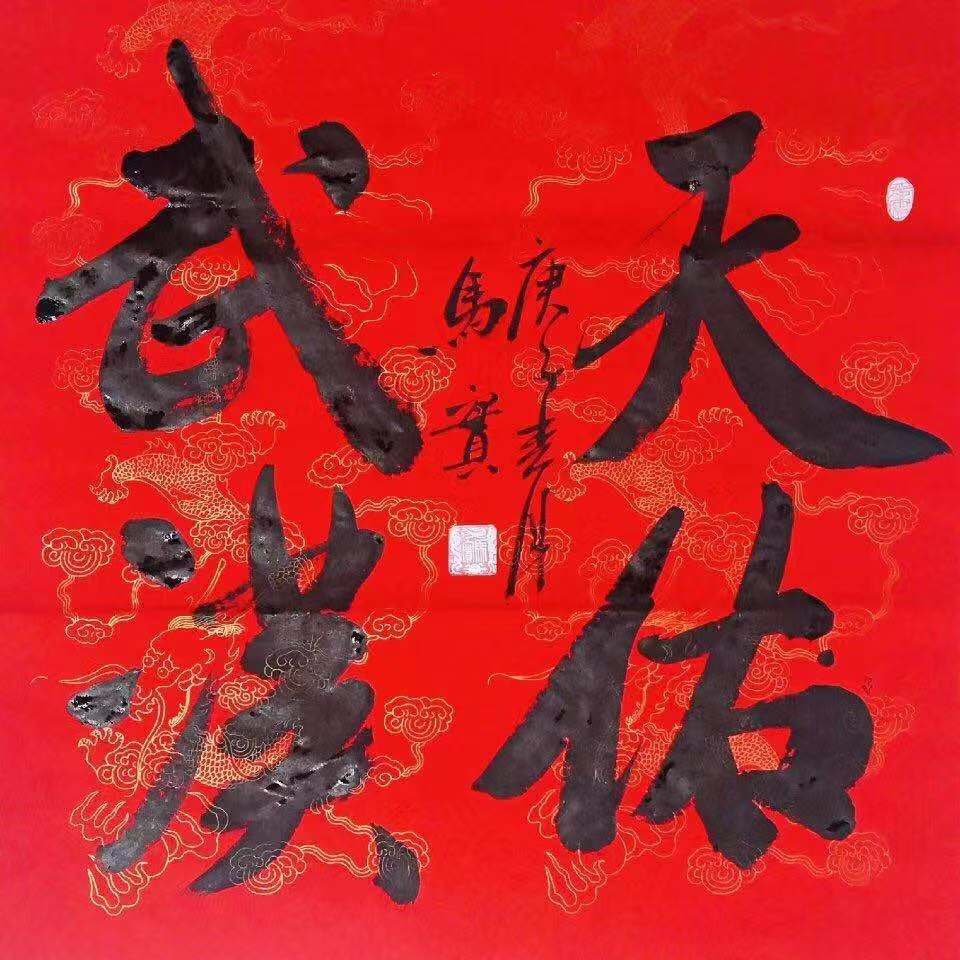 天佑
武漢
庚子春月
馬寶